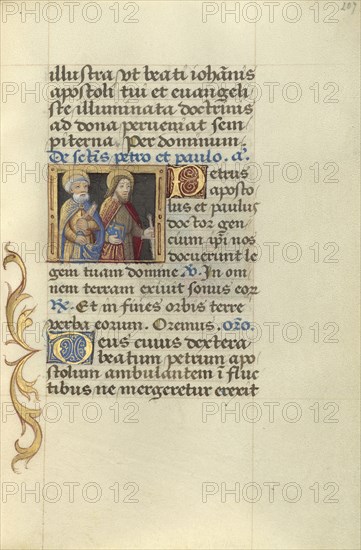 207
illustra ut beati iohãnis
apostoli tui et euangeli
ste illuminata doctrinis
ad dona perueniat sem
piterna. Per dominum
De sctis petro et paulo. ã.
Petrus
aposto
lus et paulus
doctor gen
cium ipi nos
docuerunt le
gem tuam domine. V. In om
nem terram exiuit sonus eor
Re. Et in fines orbis terre
verba eorum. Oremus. oro.
Deus cuius dextera
beatum petrum apo
stolum ambulantem ĩ fluc
tibus ne mergeretur erexit
PHOTO12